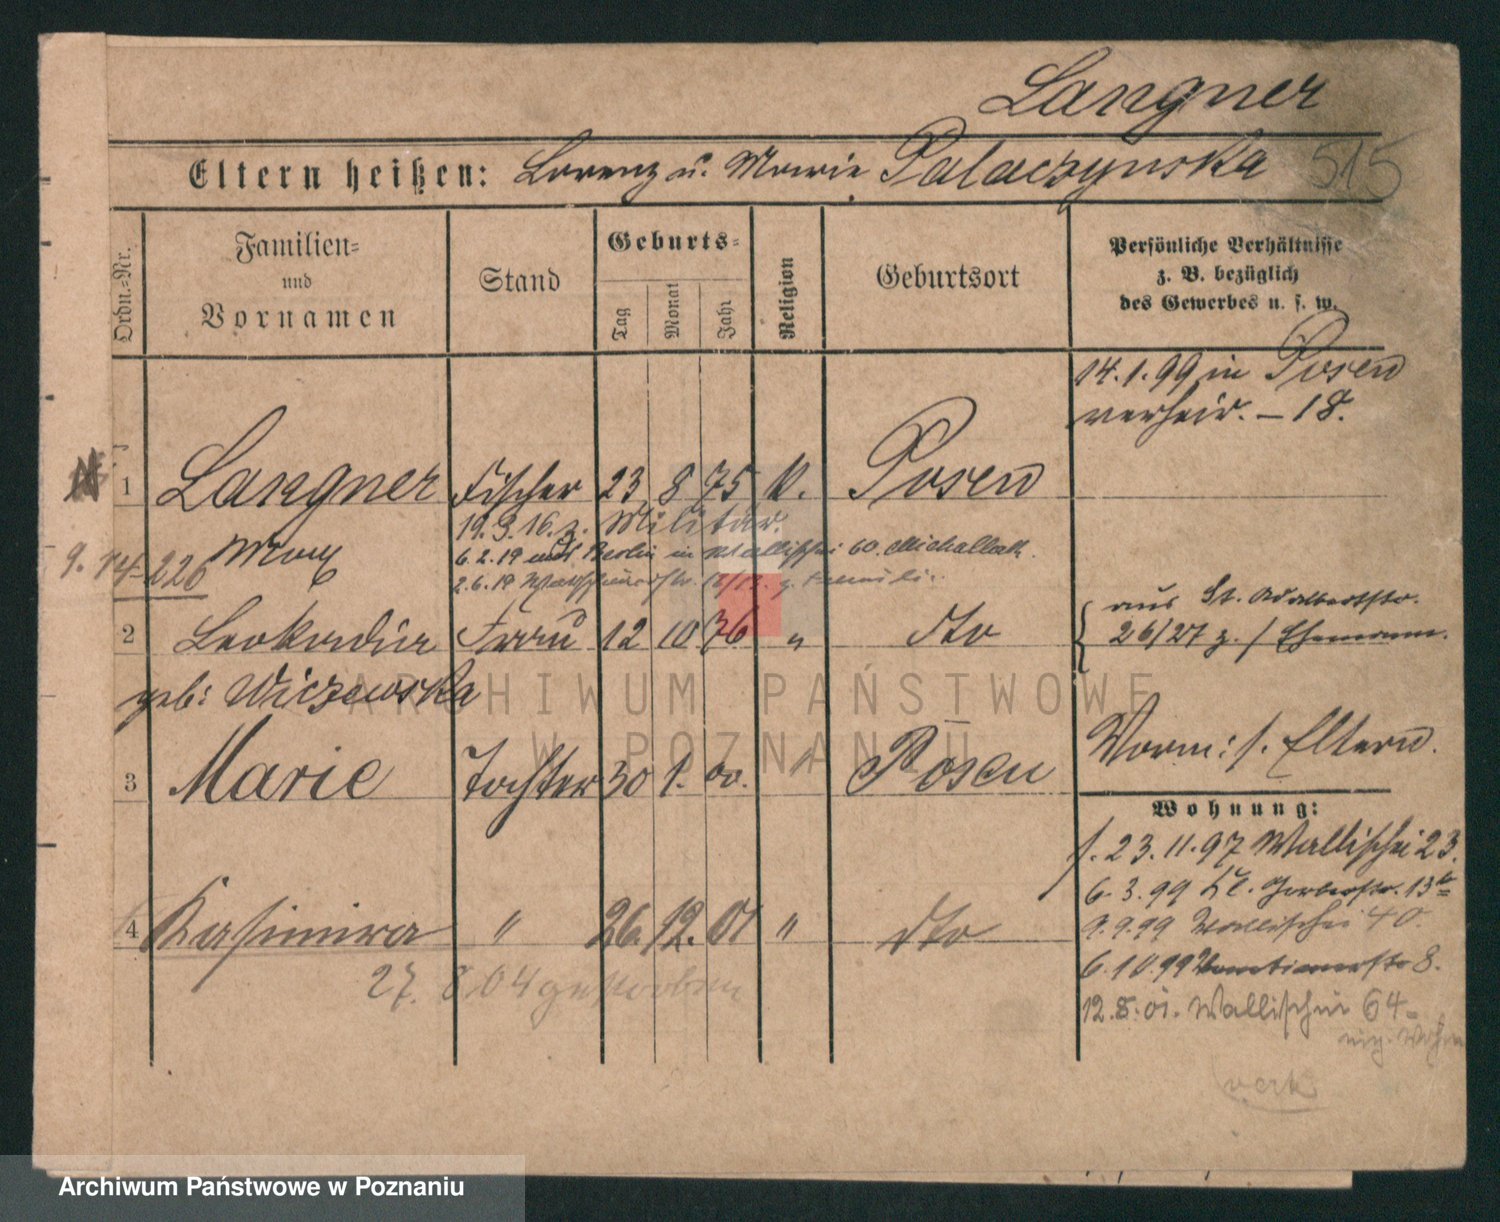 Langner
Eltern heißen: Lorenz u. Marie Palaczynska 515
Ordn.-Nr.
Familien-
und
Vornamen
Stand
Geburts-
Tag
Monat
Jahr
Religion
Geburtsort
Persönliche Verhältnisse
z. B. bezüglich
des Gewerbes u. s. w.
14.1.99 in Posen
verheir. – 18.
1 Langner Fischer 23 8 75 k. Posen
19.3.16. z. Militär
Max
6.2.19 aus Berlin in Wallischei 60.
2.6.19
9. 14 226
2 Leokadia Frau 12 10 76 " dto
aus St. Adalbertstr.
26/27 z. / Ehemann.
geb: Wiczewska
3 Marie Tochter 30 1. 00. " Posen
Vorm: s. Eltern.
Wohnung:
f. 23.11.97 Wallischei 23.
6.3.99 Kl. Gerberstr. 13
9.9.99 Wallischei 40.
6.10.99 Venetianerstr 8.
12.8.01. Wallischei 64.
4 Kasimira " 26. 12. 01 " dto
27. 8 04 gestorben
ARCHIWUM PAŃSTWOWE
W POZNANIU
Archiwum Państwowe w Poznaniu